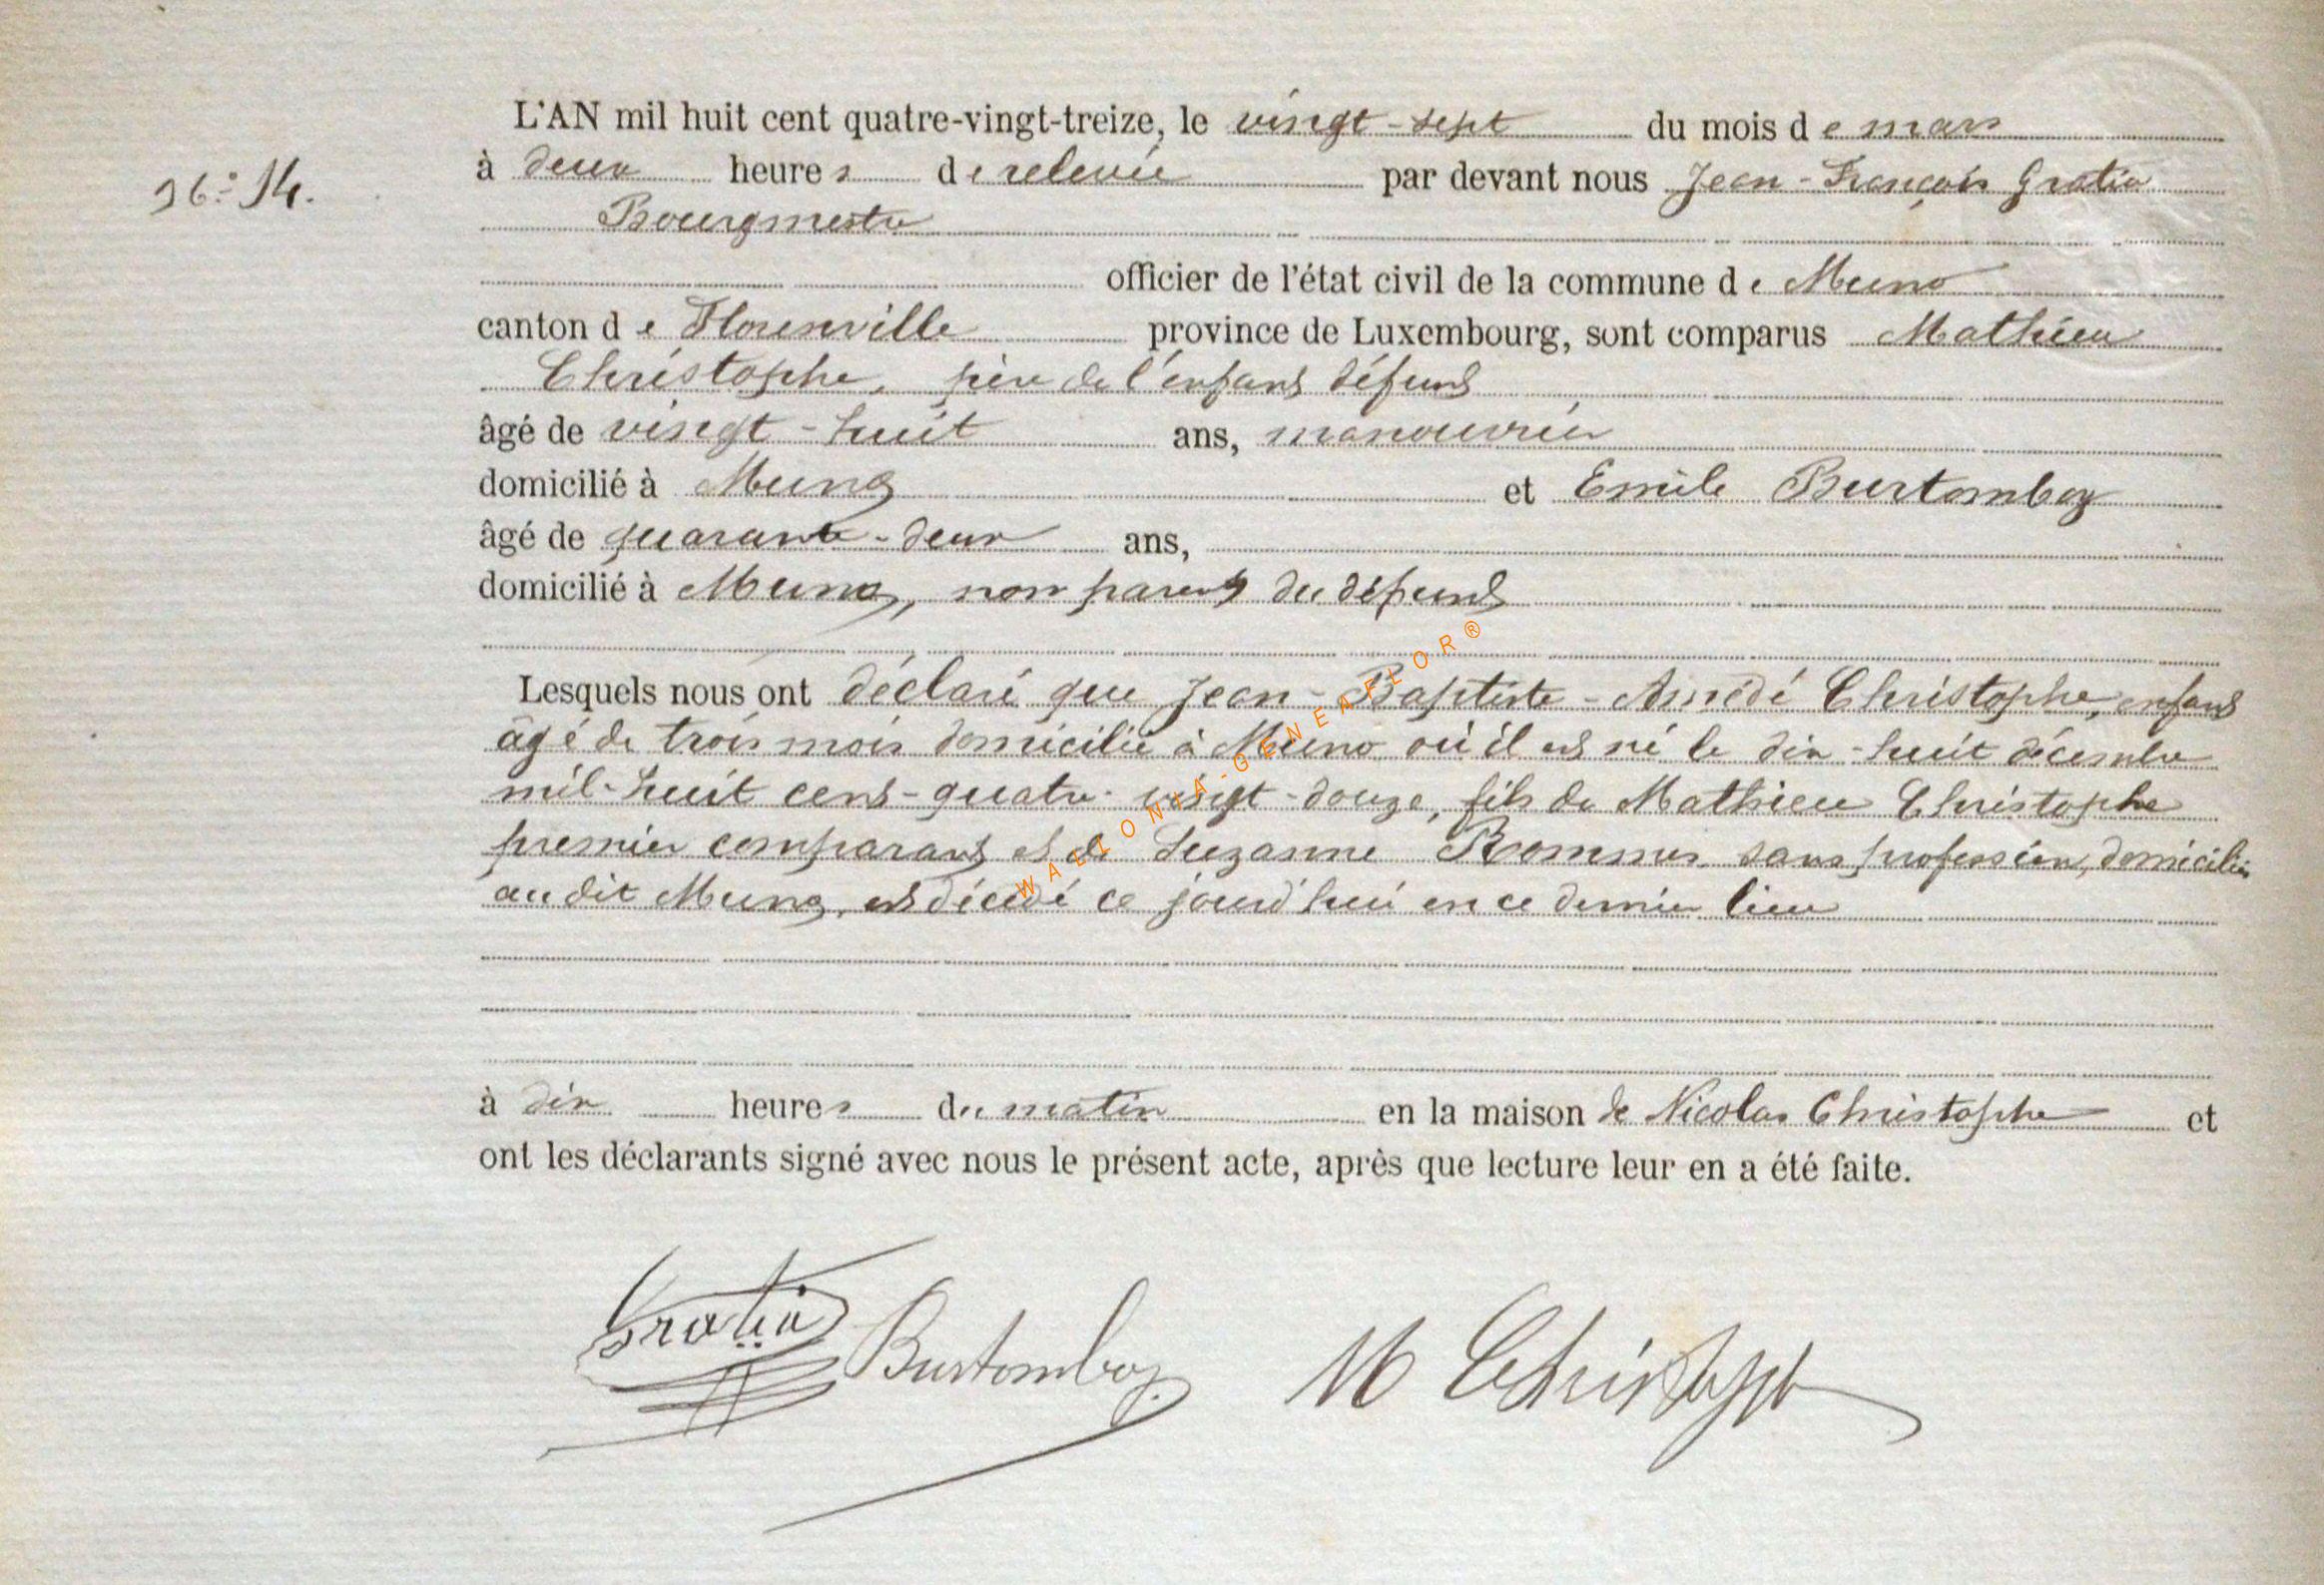 L'AN mil huit cent quatre-vingt-treize, le vingt-sept du mois de mars
N°: 14.
à deux heures de relevée par devant nous Jean-François Gratia
Bourgmestre
officier de l'état civil de la commune de Muno
canton de Florenville province de Luxembourg, sont comparus Mathieu
Christophe, père de l'enfant défunt
âgé de vingt-huit ans, manouvrier
domicilié à Muno et Emile Burtomboy
âgé de quarante-deux ans,
domicilié à Muno, non parent du défunt
Lesquels nous ont déclaré que Jean-Baptiste-Amédé Christophe, enfant
âgé de trois mois domicilié à Muno où il est né le dix-huit décembre
mil-huit cent-quatre-vingt-douze, fils de Mathieu Christophe
premier comparant et de Suzanne sans profession, domiciliés
au dit Muno, est décédé ce jourd'hui en ce dernier lieu
à dix heures du matin en la maison de Nicolas Christophe et
ont les déclarants signé avec nous le présent acte, après que lecture leur en a été faite.
Gratia Burtomboy M Christophe
WALLONIA-GENEAFLOR®